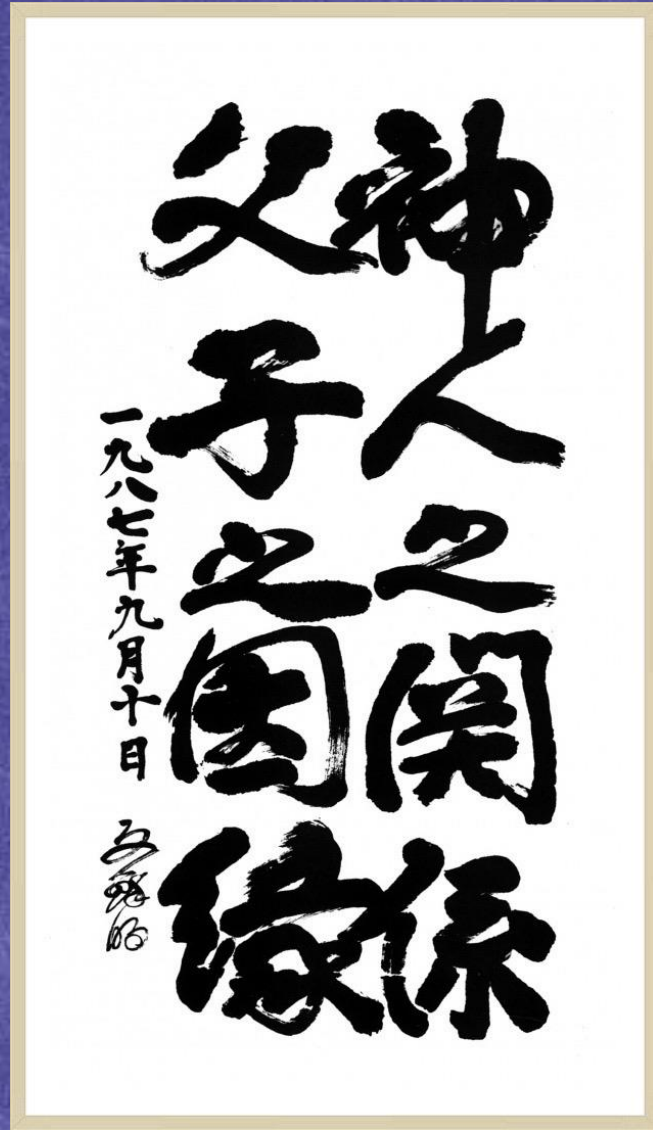 神人之関係
父子之因縁
一九八七年九月十日
文鮮明